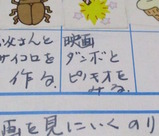 父さんと
サイコロを
作る。
映画
ダンボと
ピノキオを
画を見にいくのり